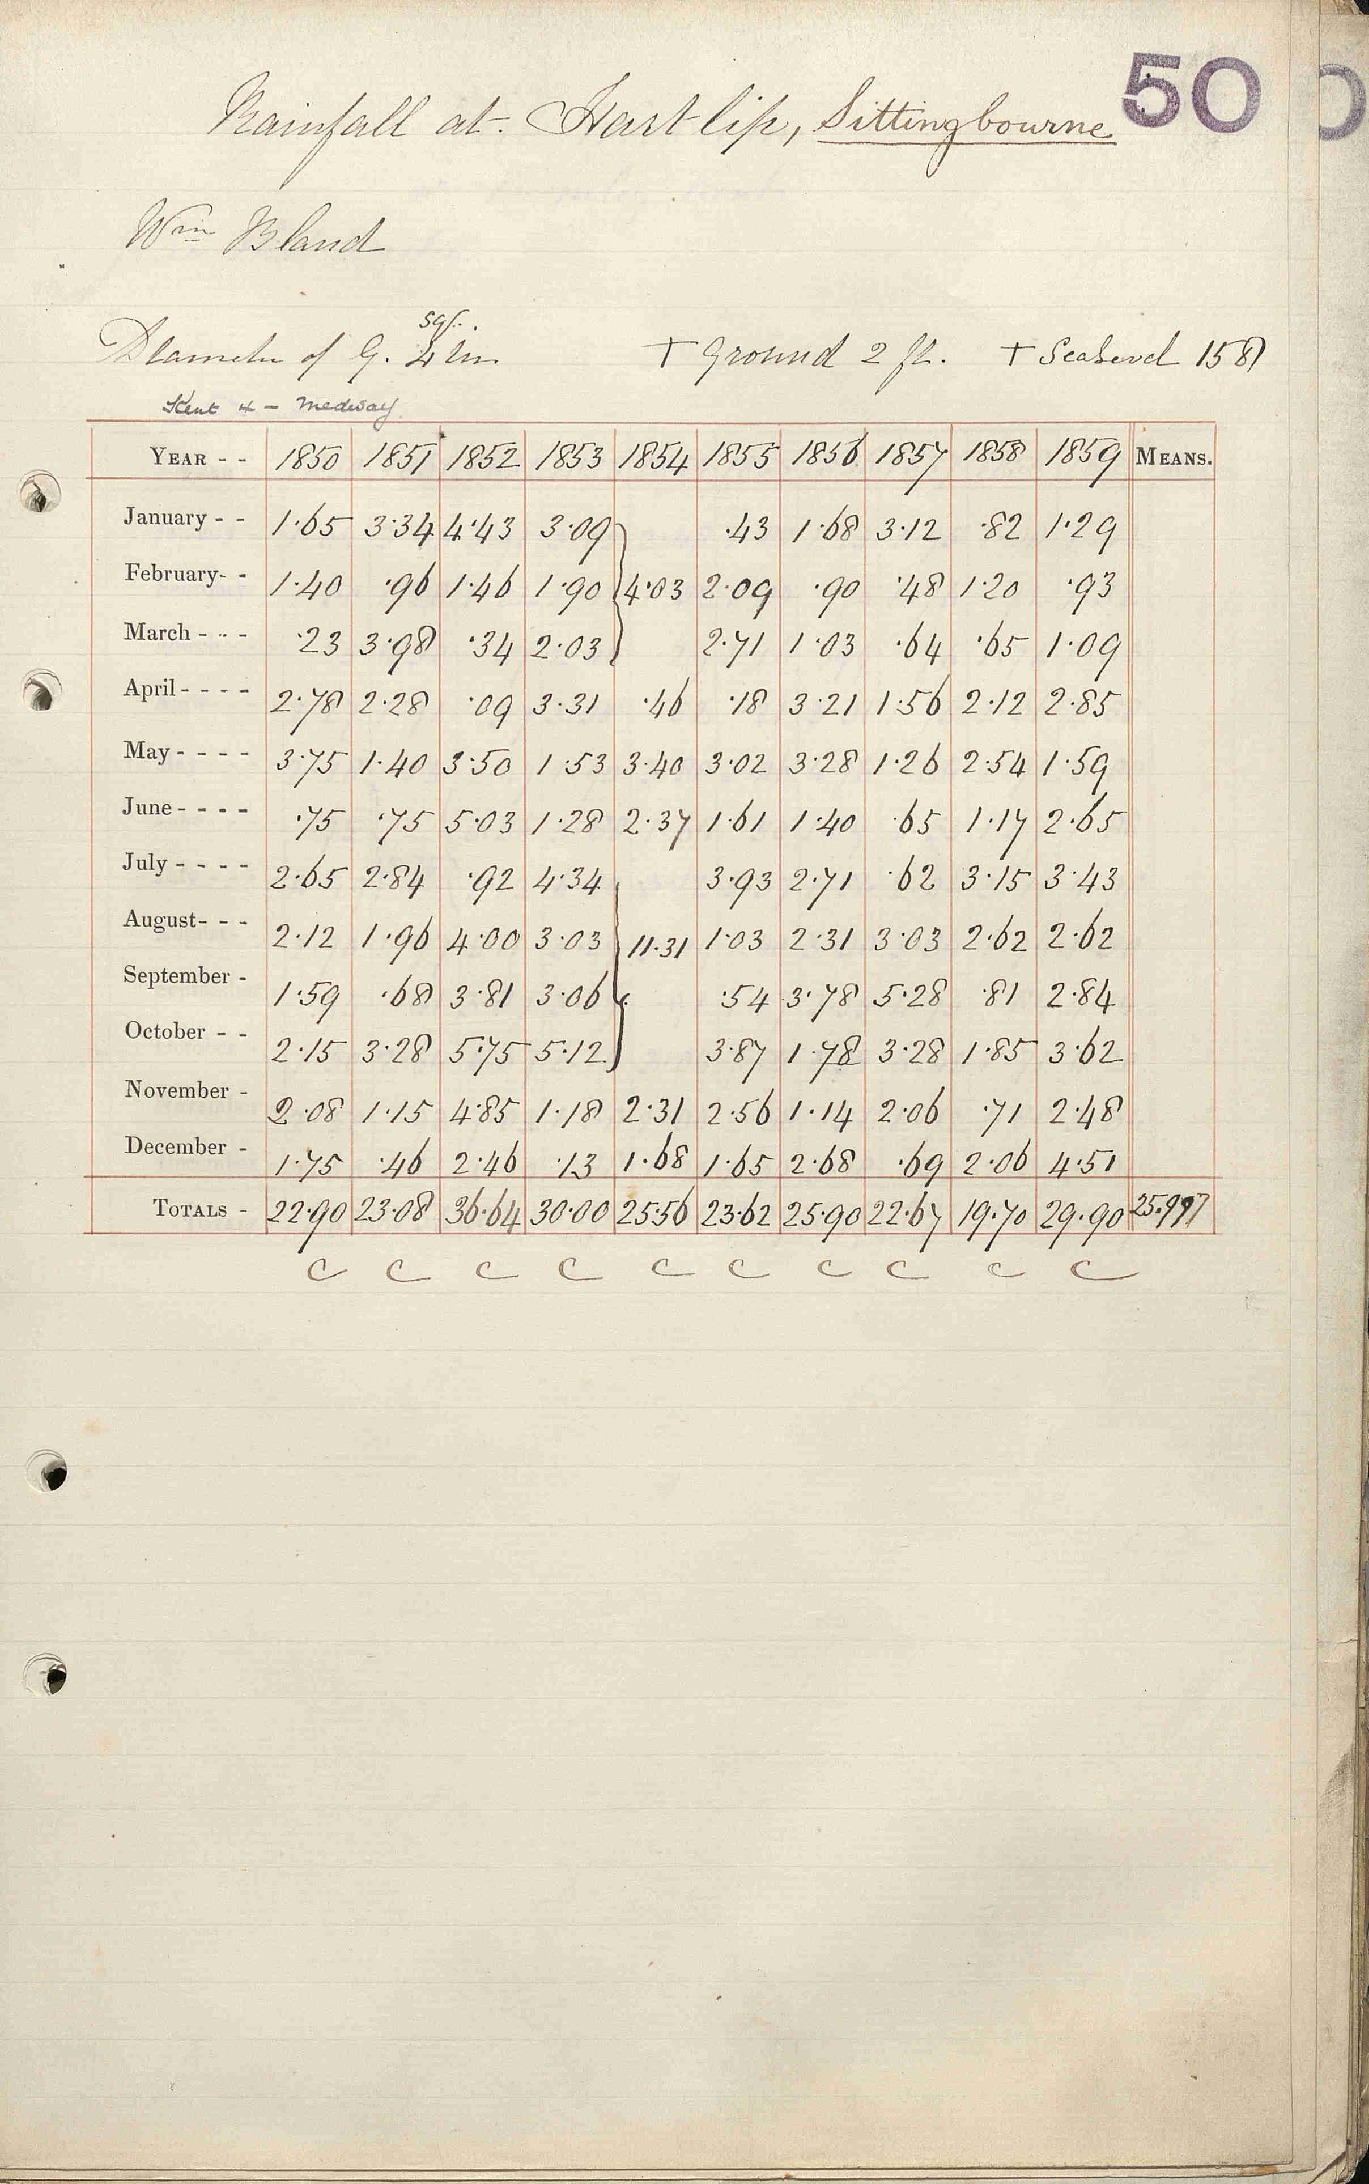 50
Rainfall at Hartlip, Sittingbourne
Wm Bland
sqr.
Diameter of G. 4 in + Ground 2 ft. + Sea Level 158
Kent 4 - Medway
YEAR - - 1850 1851 1852 1853 1854 1855 1856 1857 1858 1859 MEANS.
January - - 1.65 3.34 4.43 3.09 .43 1.68 3.12 .82 1.29
February- - 1.40 .96 1.46 1.90 4.03 2.09 .90 .48 1.20 .93
March - - - .23 3.98 .34 2.03 2.71 1.03 .64 .65 1.09
April - - - - 2.78 2.28 .09 3.31 .46 .18 3.21 1.56 2.12 2.85
May - - - - 3.75 1.40 3.50 1.53 3.40 3.02 3.28 1.26 2.54 1.59
June - - - - .75 .75 5.03 1.28 2.37 1.61 1.40 .65 1.17 2.65
July - - - - 2.65 2.84 .92 4.34 3.93 2.71 .62 3.15 3.43
August- - - 2.12 1.96 4.00 3.03 11.31 1.03 2.31 3.03 2.62 2.62
September - 1.59 .68 3.81 3.06 .54 3.78 5.28 .81 2.84
October - - 2.15 3.28 5.75 5.12 3.87 1.78 3.28 1.85 3.62
November - 2.08 1.15 4.85 1.18 2.31 2.56 1.14 2.06 .71 2.48
December - 1.75 .46 2.46 .13 1.68 1.65 2.68 .69 2.06 4.51
TOTALS - 22.90 23.08 36.64 30.00 25.56 23.62 25.90 22.67 19.70 29.90 25.997
C C C C C C C C C C